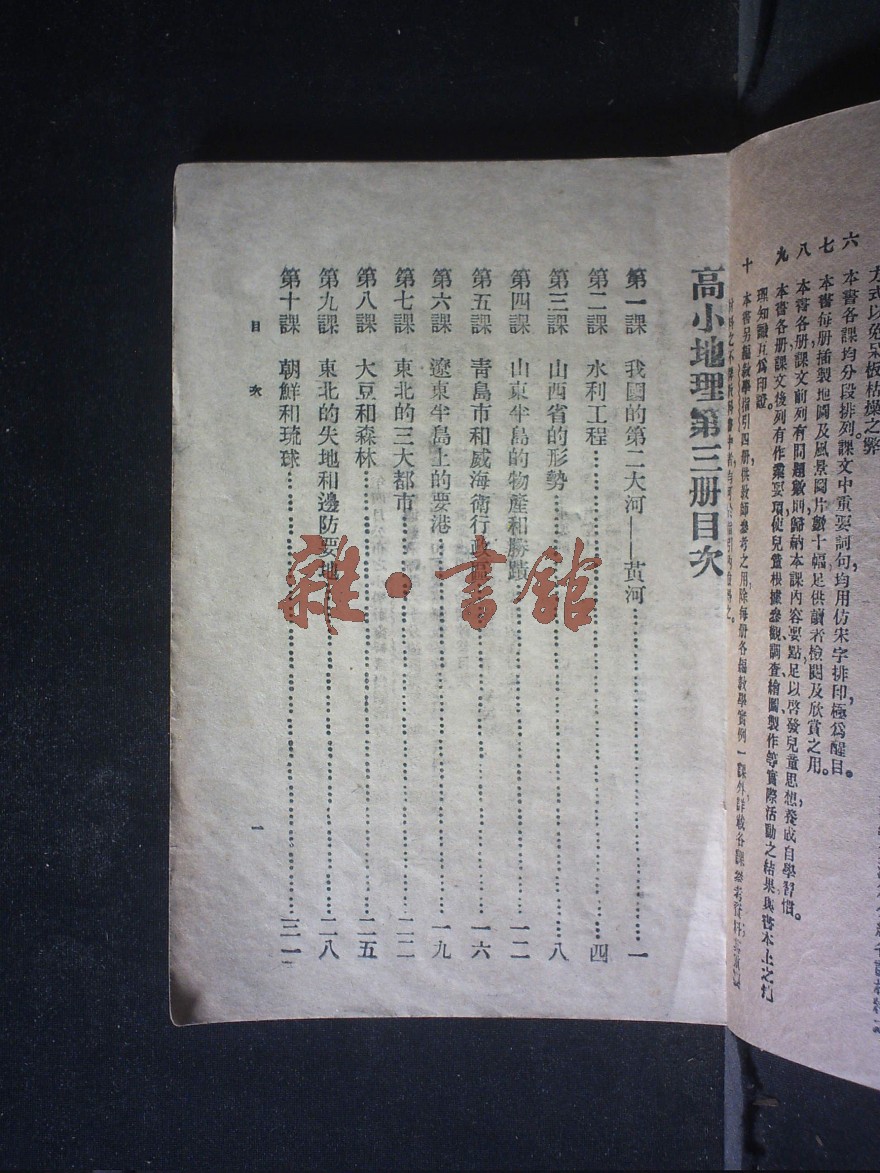 方式以免呆板枯燥之弊
六 本書各課均分段排列課文中重要詞句均用仿宋字排印極爲醒目。
七 本書每册插製地圖及風景圖片數十幅,足供讀者檢閱及欣賞之用。
八 本書各册課文前列有問題數則歸納本課內容要點足以啓發兒童思想,養成自學習慣。
九 本書各册課文後列有作業要項使兒童根據參觀、調查、繪圖、製作等實際活動之結果與書本上之
理知識互爲印證。
十 本書另編教學指引四册,供教師參考之用,除每册各編教學實例一課外
高小地理第三册目次
第一課 我國的第二大河——黃河 一
第二課 水利工程 四
第三課 山西省的形勢 八
第四課 山東半島的物產和勝蹟 一二
第五課 青島市和威海衛行政區 一六
第六課 遼東半島上的要港 一九
第七課 東北的三大都市 二二
第八課 大豆和森林 二五
第九課 東北的失地和邊防要地 二八
第十課 朝鮮和琉球 三一
目次
一
雜·書館